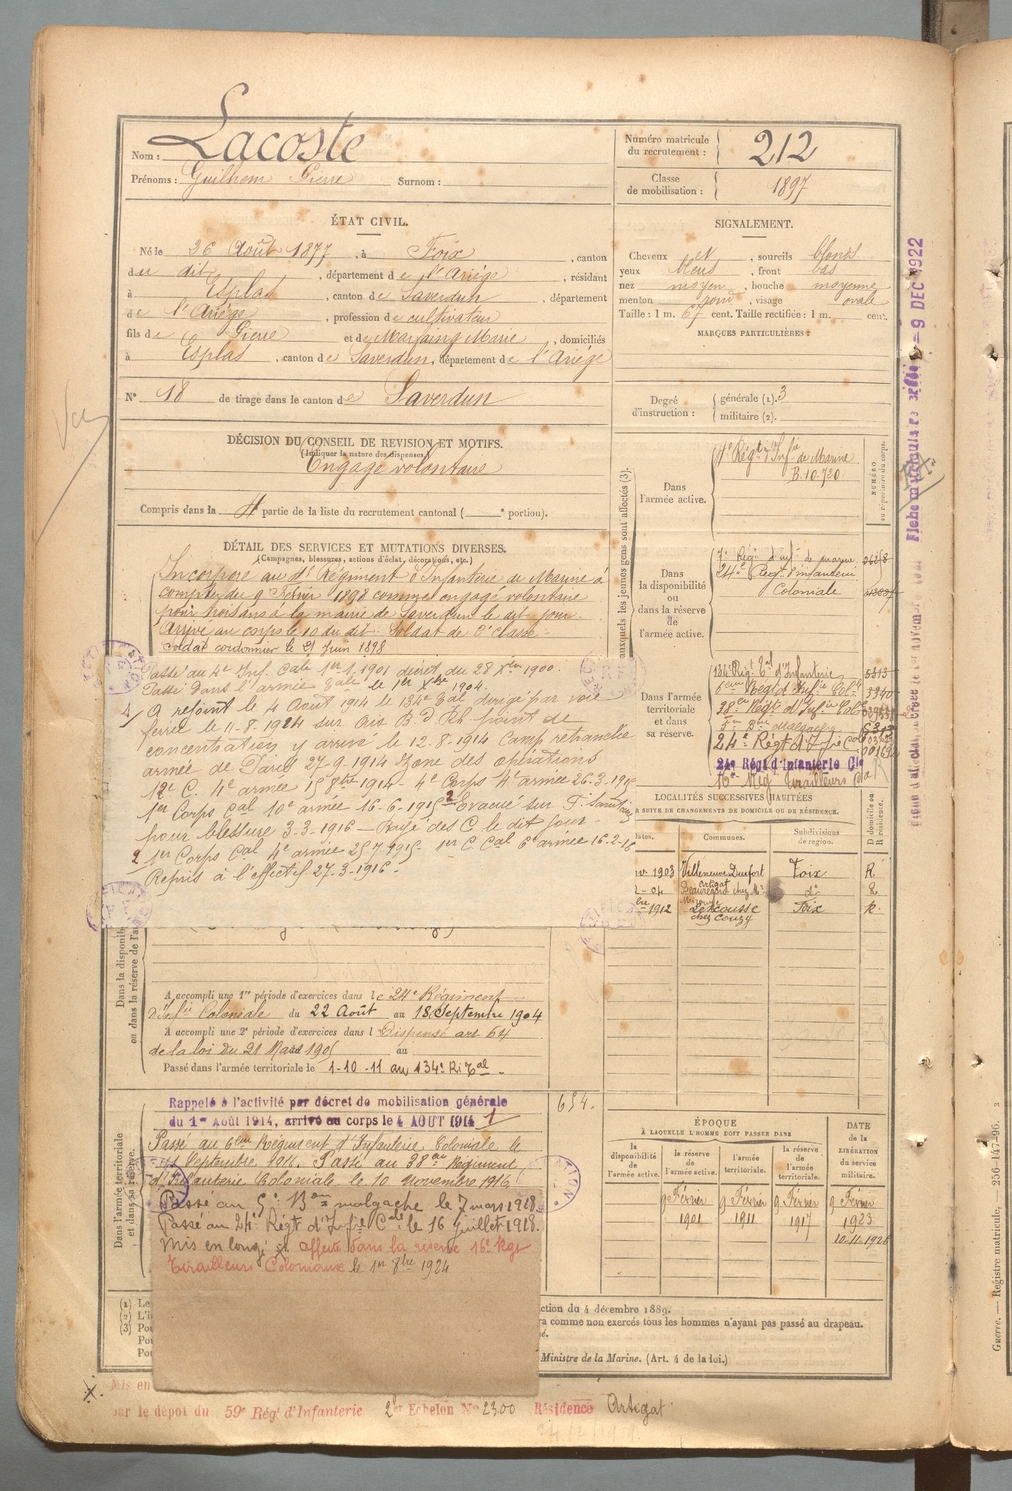 Nom : Lacoste
Prénoms : Guilhem Pierre Surnom :
Numéro matricule du recrutement : 212
Classe de mobilisation : 1897
ÉTAT CIVIL.
Né le 26 Août 1877, à Foix, canton
du dit, département de l'Ariège, résidant
à Esplas, canton de Saverdun, département
de l'Ariège, profession de cultivateur
fils de Pierre et de Marfaing Marie, domiciliés
à Esplas, canton de Saverdun, département de l'Ariège
N° 18 de tirage dans le canton de Saverdun
SIGNALEMENT.
Cheveux et, sourcils blonds
yeux bleus, front bas
nez moyen, bouche moyenne
menton rond, visage ovale
Taille : 1 m. 67 cent. Taille rectifiée : 1 m. cent.
MARQUES PARTICULIÈRES :
Degré d'instruction : générale (1). 3
militaire (2).
DÉCISION DU CONSEIL DE REVISION ET MOTIFS.
(Indiquer la nature des dispenses)
Engagé volontaire
Compris dans la 4e partie de la liste du recrutement cantonal ( e portion).
DÉTAIL DES SERVICES ET MUTATIONS DIVERSES.
(Campagnes, blessures, actions d'éclat, décorations, etc.)
Incorporé au d' Régiment d'Infanterie de Marine à
compter du 9 Février 1898 comme engagé volontaire
pour trois ans à la mairie de Saverdun le dit jour.
Arrivé au corps le 10 du dit. Soldat de 2e classe.
Soldat cordonnier le 21 Juin 1898
Passé au 4e Inf. Cale 1er 1.1901 décret du 28 Xbre 1900.
Passé dans l'armée le 1er Xbre 1904.
1 A rejoint le 4 Août 1914 le 134e Tal dirigé par voie
ferrée le 11-8-1914 sur point de
concentration y arrivé le 12.8-1914 Camp retranché
armée de Paris 27-9-1914 Zone des opérations
12e C. 4e armée 15 8bre 1914 - 4e Corps 4e armée 26-3-1915
1er Corps Cal 10e armée 16-6-1915 2 Evacué sur F. Sanitaire
pour blessure 3-3-1916 - Rayé des C. le dit jour.
2 1er Corps Cal 4e armée 25.7.1915 1er C. Cal 6e armée 16-2-16
Repris à l'effectif 27-3-1916.
auxquels les jeunes gens sont affectés (3).
NUMÉRO au répertoire du corps.
Dans l'armée active.
4e Régt d'Infie de Marine
B.10.720
Dans la disponibilité ou dans la réserve de l'armée active.
7e Régt d'inf. de marine
24e Régt d'infanterie Coloniale
Dans l'armée territoriale et dans sa réserve.
134 Régt Tal d'Infanterie 5313
6eme Régt d'Infie Cole 3940
38eme Régt d'Infie Cole
5e Bon Malgache
24e Régt d'Infie Cole
24e Régt d'Infanterie Cle
16e Rég Tirailleurs
LOCALITÉS SUCCESSIVES HABITÉES
SUITE DE CHANGEMENTS DE DOMICILE OU DE RÉSIDENCE.
Dates. Communes. Subdivisions de région. D domicile ou R résidence.
1903 Villeneuve Durfort Foix R
04 Artigat Beauregard chez Mr do R
1912 Lescousse chez Couzy Foix R.
Dans la disponibilité ou dans la réserve de l'armée
A accompli une 1re période d'exercices dans le 24e Régiment
d'Infie Coloniale du 22 Août au 18 Septembre 1904
A accompli une 2e période d'exercices dans l Dispensé art 64
de la loi du 21 Mars 1905 au
Passé dans l'armée territoriale le 1-10-11 au 134e Ri Tal.
Dans l'armée territoriale et dans sa réserve.
Rappelé à l'activité par décret de mobilisation générale
du 1er Août 1914, arrivé au corps le 4 AOUT 1914 1
654.
Passé au 6eme Régiment d'Infanterie Coloniale le
Septembre 1914. Passé au 38eme Régiment
d'Infanterie Coloniale le 10 novembre 1916
Passé au 5e Bon malgache le 7 mars 1918.
Passé au 24e Régt d'Infie Cale le 16 juillet 1918.
Mis en congé affecté dans la réserve 16e Rgt
Tirailleurs Coloniaux le 1er 8bre 1924
ÉPOQUE
À LAQUELLE L'HOMME DOIT PASSER DANS
la disponibilité de l'armée active. la réserve de l'armée active. l'armée territoriale. la réserve de l'armée territoriale.
DATE de la LIBÉRATION du service militaire.
9 Février 1901 9 Février 1911 9 Février 1917 9 Février 1923
10-11-1926
ction du 4 décembre 1889.
ra comme non exercés tous les hommes n'ayant pas passé au drapeau.
Ministre de la Marine. (Art. 4 de la loi.)
(1) Le
(2) L'i
(3) Pou
Pou
Pou
Mis en
par le dépôt du 59e Régt d'Infanterie 2e Echelon N° 2300 Résidence Artigat
9 DEC 1922
Guerre. — Registre matricule. — 256-147-96.